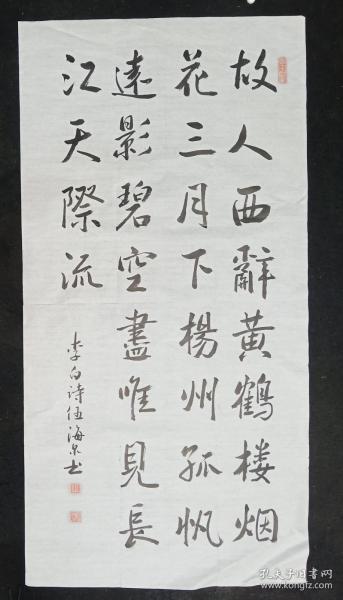 故人西辭黄鶴楼烟
花三月下楊州孤帆
遠影碧空盡唯見長
江天際流
李白诗伍海泉书
孔夫子旧书网